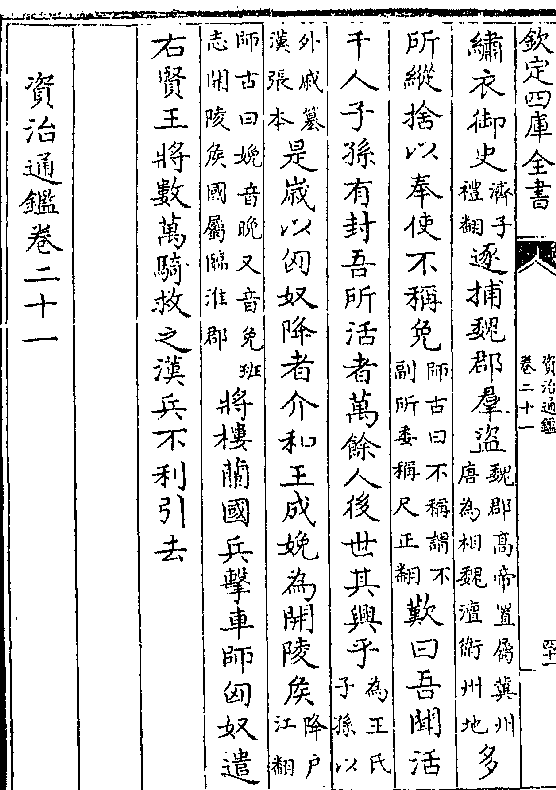 欽定四庫全書
資治通鑑
卷二十一
繡衣御史濟子禮翻逐捕魏郡羣盜魏郡高帝置屬冀州唐為相魏澶衛州地多
所縱捨以奉使不稱免師古曰不稱謂不副所委稱尺正翻歎曰吾聞活
千人子孫有封吾所活者萬餘人後世其興乎為王氏子孫以
外戚墓漢張本是歲以匈奴降者介和王成娩為開陵侯降户江翻
師古曰娩音晚又音免班志開陵侯國屬臨淮郡將樓蘭國兵擊車師匈奴遣
右賢王將數萬騎救之漢兵不利引去
資治通鑑卷二十一